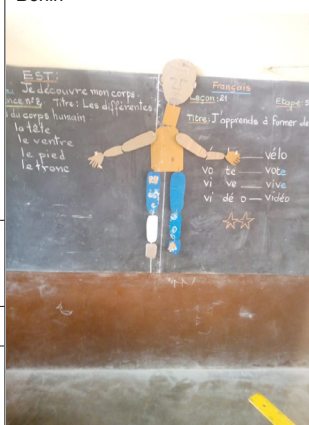 Bénin
EST:
Je découvre mon corps.
nce n°2, Titre: Les différentes
du corps humain
la tête
le ventre
le pied
le tronc
Français
Leçon: 21
Etape
Titre: J'apprends à former de
vélo
vo te — vote
vi ve — vive
vi dé o — vidéo